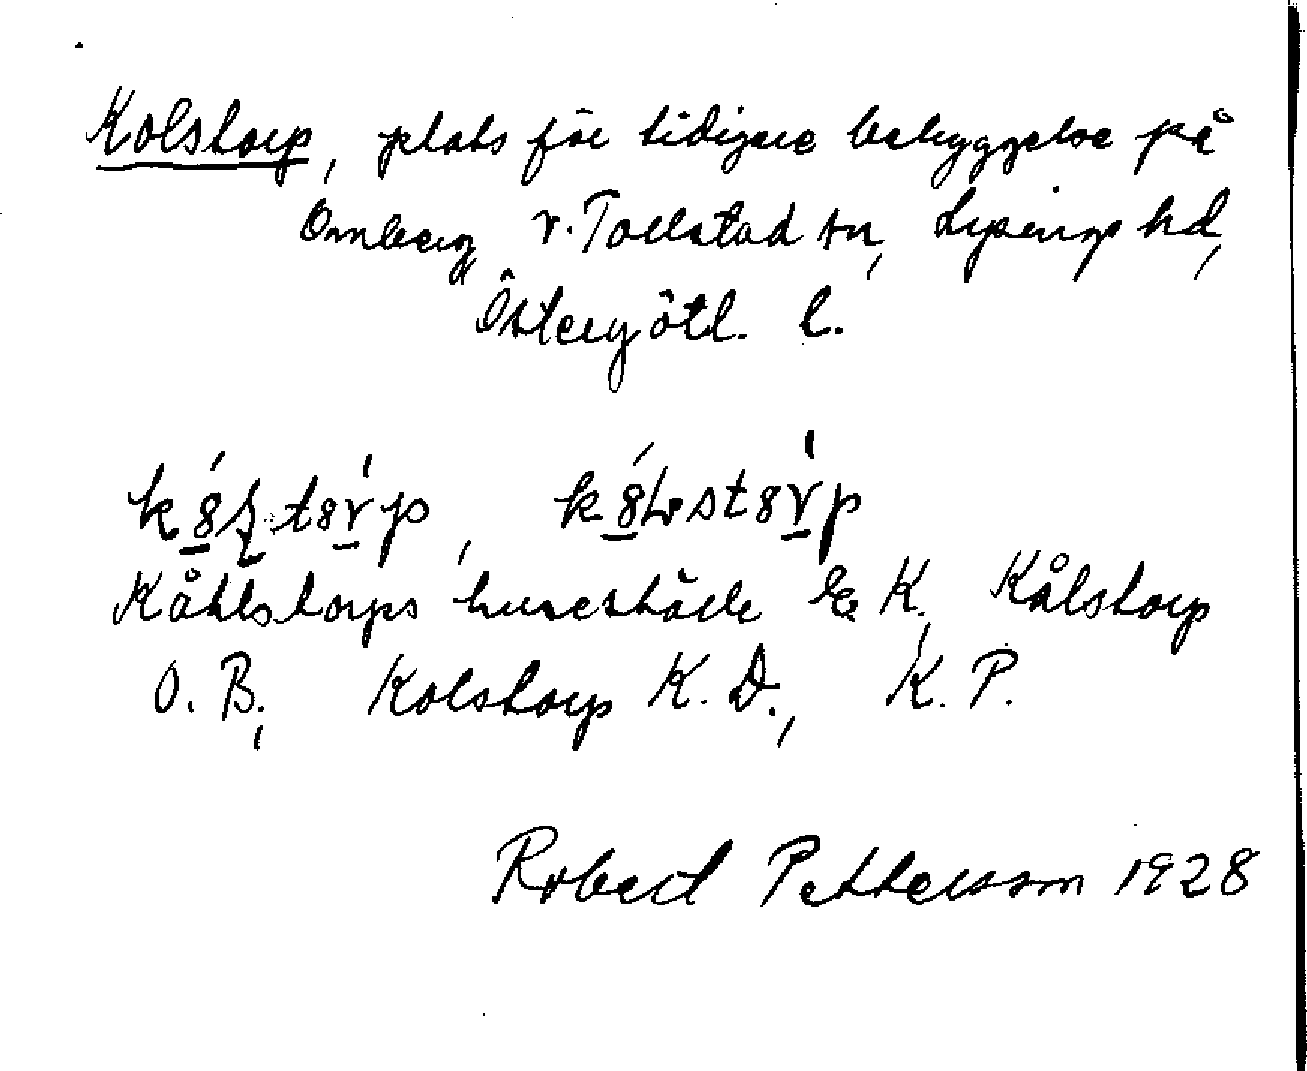 Kolstorp, plats för tidigare bebyggelse på
Omberg, V. Tollstad sn, Lysings hd,
Östergötl. l.
Kåhlstorps huseställe E. K., Kålstorp
O. B., Kolstorp K. D., K. P.
Robert Pettersson 1928